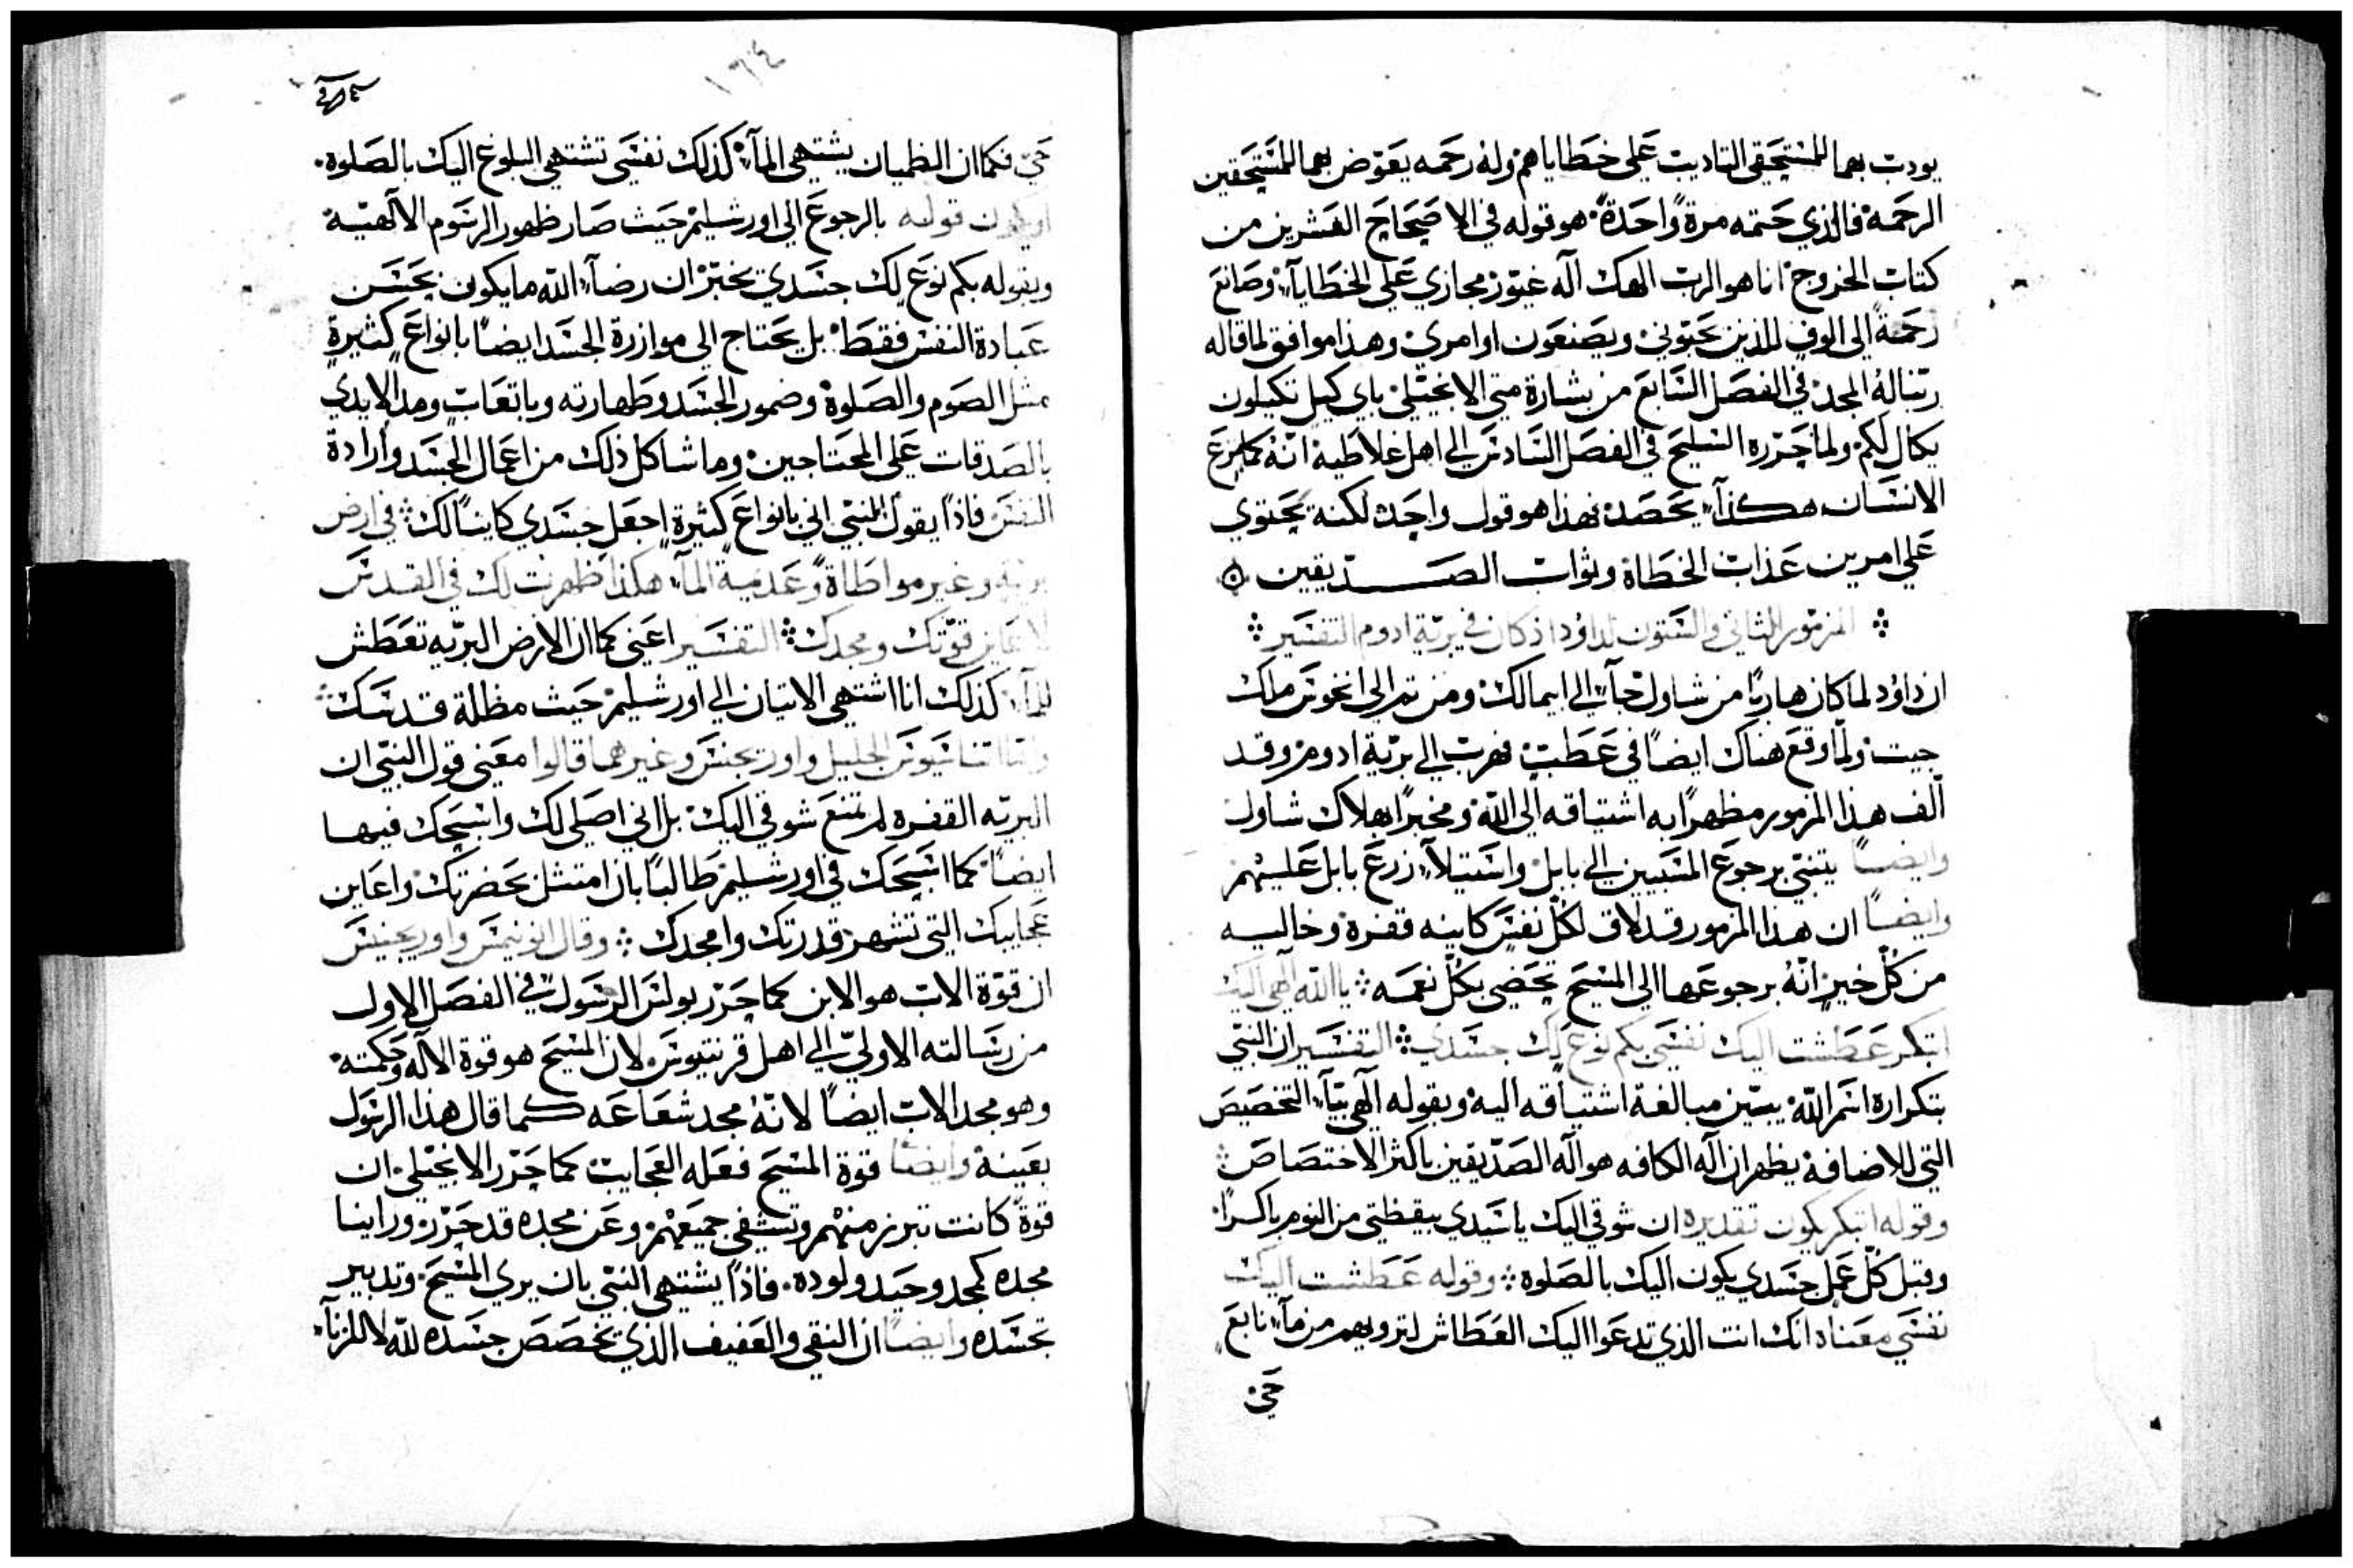 يودب بهما للمستحقي التاديب علي خطاياهم وله رحمه يعوض بهما للمستحقين
الرحمة فالذي حتمه مرةً واحدةً هو قوله في الاصحاح العشرين من
كتاب الخروج انا هو الرب الهك اله غيور مجازي علي الخطايا وصانع
رحمةً الي الوفٍ للذين يحبوني ويصنعون اوامري وهذا موافق لما قاله
ربنا له المجد في الفصل السابع من بشارة متي الانجيلي باي كيل تكيلون
يكال لكم ولما حرره السليح في الفصل السادس الي اهل غلاطية انه كما يزرع
الانسان هكذا يحصد فهذا هو قول واحد لكنه يحتوي
علي امرين عذاب الخطاة وثواب الصديقين
المزمور الثاني والستون لداود اذ كان في برية ادوم التفسير
ان داود لما كان هاربًا من شاول جاء الي ابيمالك ومن ثم الي انخوس ملك
جيت ولما وقع هناك ايضًا في عطبٍ فهرب الي برية ادوم وقد
الف هذا المزمور مظهرًا به اشتياقه الي الله ومخبرًا بهلاك شاول
وايضًا يتنبي برجوع المسبيين الي بابل واستيلاء زرع بابل عليهم
وايضًا ان هذا المزمور قد لاق لكل نفسٍ كاينه قفرة وخاليه
من كل خيرٍ انه برجوعها الي المسيح تحضي بكل نعمه يا الله الهي اليك
ابتكر عطشت اليك نفسي بكم نوع لك جسدي التفسير ان النبي
بتكراره اسم الله يبين مبالغة اشتياقه اليه وبقوله الهي بياء التخصيص
التي للاضافة يظهر ان اله الكافه هو اله الصديقين باكثر الاختصاص
وقوله ابتكر يكون تقديره ان شوقي اليك يا سيدي ييقظني من النوم باكرًا
وقبل كل عملٍ جسدي يكون اليك بالصلوة وقوله عطشت اليك
نفسي معناه انك انت الذي تدعوا اليك العطاش لترويهم من ماء نابع
حي
١٦٤
حي فكما ان الظميان يشتهي الماء كذلك نفسي تشتهي البلوغ اليك بالصلوة
او يكون قوله بالرجوع الي اورشليم حيث صار ظهور الرسوم الالهية
وبقوله بكم نوع لك جسدي يخبر ان رضاء الله ما يكون بحسن
عبادة النفس فقط بل يحتاج الي موازرة الجسد ايضًا بانواع كثيرة
مثل الصوم والصلوة وضمور الجسد وطهارته وباتعابٍ ومد الايدي
بالصدقات علي المحتاجين وما شاكل ذلك من اعمال الجسد وارادة
النفس فاذًا يقول النبي اني بانواع كثيرة اجعل جسدي كاينًا لك في ارض
برية وغير مواطاة وعدمية الماء هكذا ظهرت لك في القدس
لاعاين قوتك ومجدك التفسير اعني كما ان الارض البريه تعطش
للماء كذلك انا اشتهي الاتيان الي اورشليم حيث مظلة قدسك
اتناسيوس الجليل واوريجنس وغيرهما قالوا معني قول النبي ان
البريه القفره لم تمنع شوقي اليك بل اني اصلي لك واسبحك فيها
ايضًا كما اسبحك في اورشليم طالبًا بان امتثل بحضرتك واعاين
عجايبك التي تشهر قدرتك وامجدك وقال انونيمس واوريجنس
ان قوة الاب هو الابن كما حرر بولس الرسول في الفصل الاول
من رسالته الاولي الي اهل قرنتيوس لان المسيح هو قوة الاله وحكمته
وهو مجد الاب ايضًا لانه مجد شعاعه كما قال هذا الرسول
بعينه وايضًا قوة المسيح فعله العجايب كما حرر الانجيلي ان
قوةً كانت تبرز منهم وتشفي جميعهم وعن مجده قد حرر وراينا
مجده كمجد وحيد ولوده فاذًا يشتهي النبي بان يري المسيح وتدبير
تجسده وايضًا ان النقي والعفيف الذي يخصص جسده لله لا للزناء